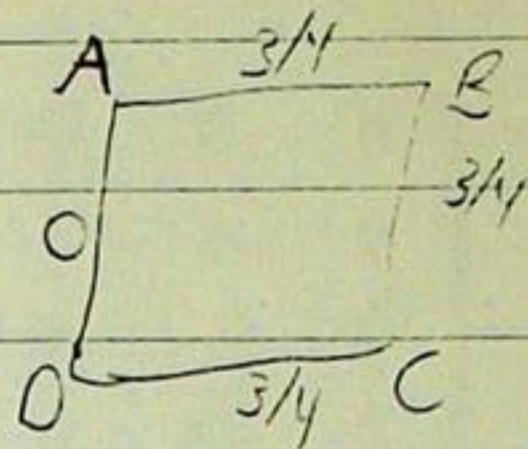 A 3/4 B
O 3/4
D 3/4 C